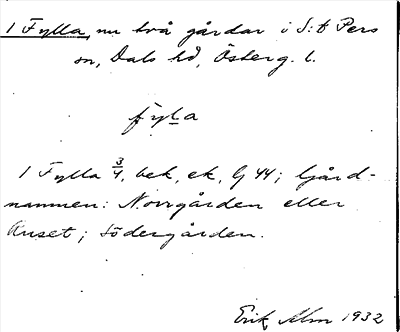 1 Fylla, nu två gårdar i S:t Pers
sn, Dals hd, Österg. l.
fyla
1 Fylla 3/4, bek, ek, G 44; Gård-
namnen: Norrgården eller
Huset; Södergården.
Erik Alm 1932